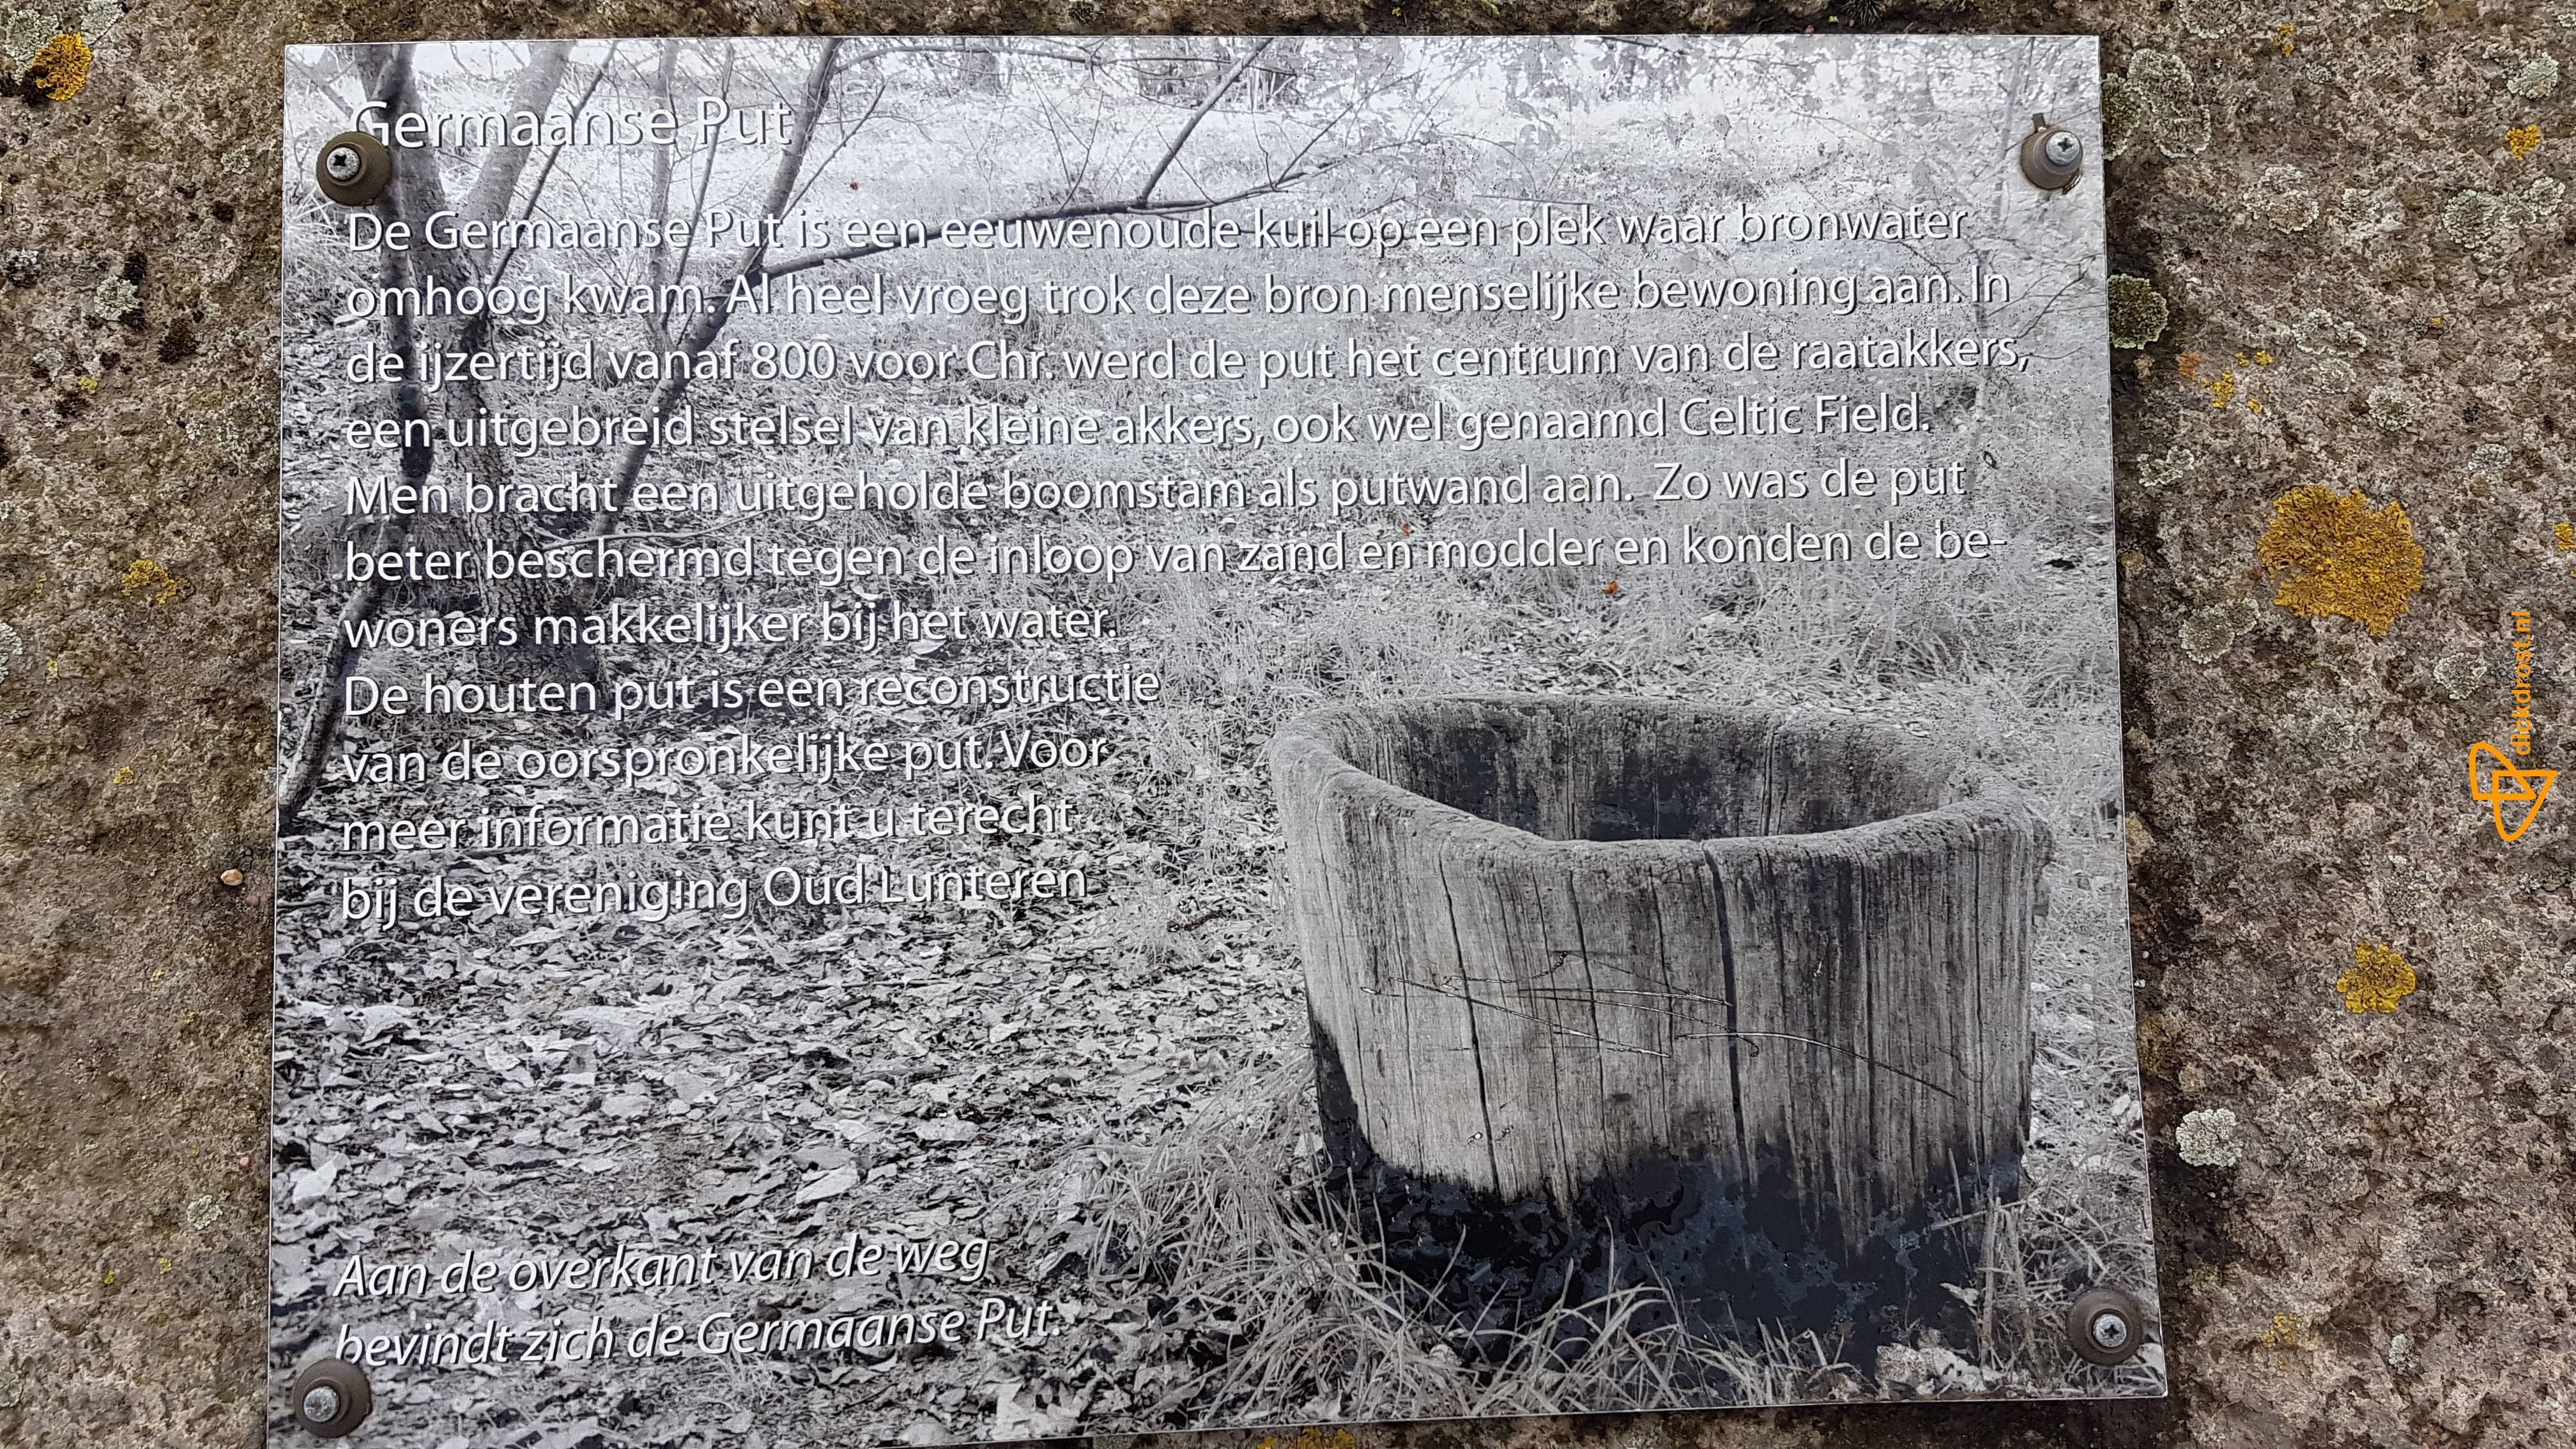 Germaanse Put
De Germaanse Put is een eeuwenoude kuil op een plek waar bronwater
omhoog kwam. Al heel vroeg trok deze bron menselijke bewoning aan. In
de ijzertijd vanaf 800 voor Chr. werd de put het centrum van de raatakkers,
een uitgebreid stelsel van kleine akkers, ook wel genaamd Celtic Field.
Men bracht een uitgeholde boomstam als putwand aan. Zo was de put
beter beschermd tegen de inloop van zand en modder en konden de be-
woners makkelijker bij het water.
De houten put is een reconstructie
van de oorspronkelijke put. Voor
meer informatie kunt u terecht
bij de vereniging Oud Lunteren
Aan de overkant van de weg
bevindt zich de Germaanse Put.
dickdrost.nl